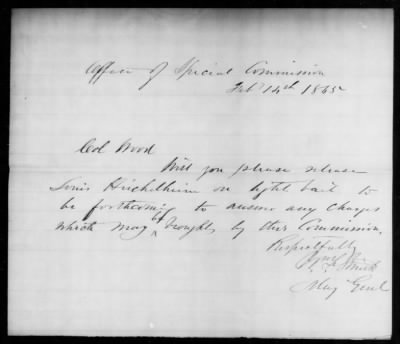 Office of Special Commission
Feb 14th 1865
Col Wood
Will you please release
Louis Hirchelheim on light bail to
be forthcoming to answer any charges
which may be brought by this Commission.
Respectfully
Maj Genl